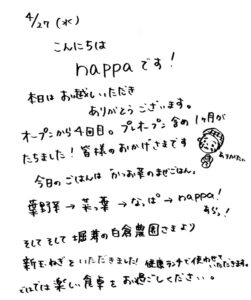 4/27 (水)
こんにちは
nappaです!
本日はお越しいただき
ありがとうございます。
オープンから4回目。プレオープン含め1ヶ月が
たちました!皆様のおかげさまです
ありがたい
今日のごはんは かつお菜のまぜごはん。
葉野菜→菜っ葉→なっぱ→nappa!
そして そして 堀芽の白倉農園さまより
新玉ねぎをいただきました!健康ランチで使わせて
いただきます。
ではでは楽しい食卓をお過ごしください。